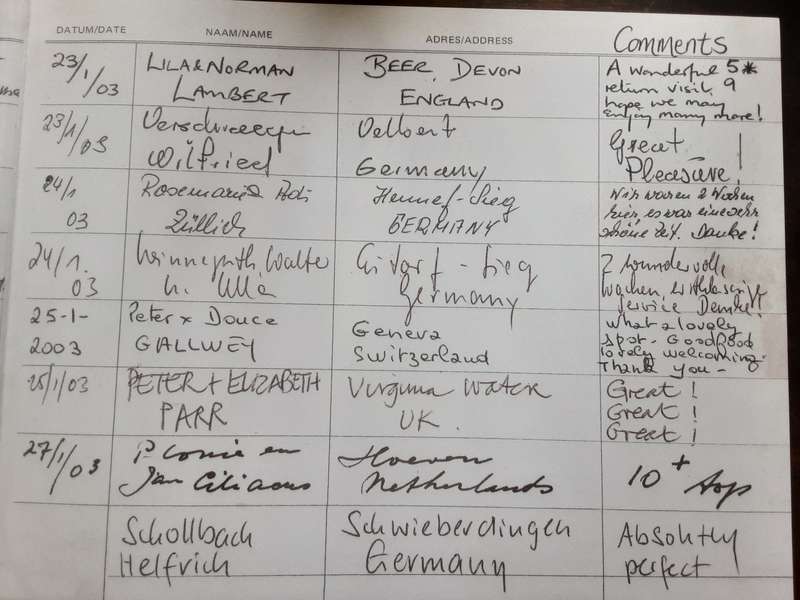 DATUM/DATE NAAM/NAME ADRES/ADDRESS Comments
23/1/03 LILA & NORMAN LAMBERT BEER, DEVON ENGLAND
A wonderful 5*
return visit. 
hope we may
enjoy many more!
23/1/03 Wilfried Velbert Germany
Great
Pleasure!
24/1 03 Rosemarie Züllich Hennef-Sieg GERMANY
Wir waren 2 Wochen
hier, es war eine sehr
schöne Zeit. Danke!
24/1. 03 Walter u. Ulla Eitorf - Sieg Germany
2 wundervolle
Wochen,
Service Danke!
25-1-2003 Peter x Douce GALLWEY Geneva Switzerland
What a lovely
spot - Good food
lovely welcoming.
Thank you -
25/1/03 PETER + ELIZABETH PARR Virginia Water UK.
Great!
Great!
Great!
27/1/03 en Jan Hoeven Netherlands
10+ top
Schollbach Helfrich Schwieberdingen Germany
Absolutly
perfect